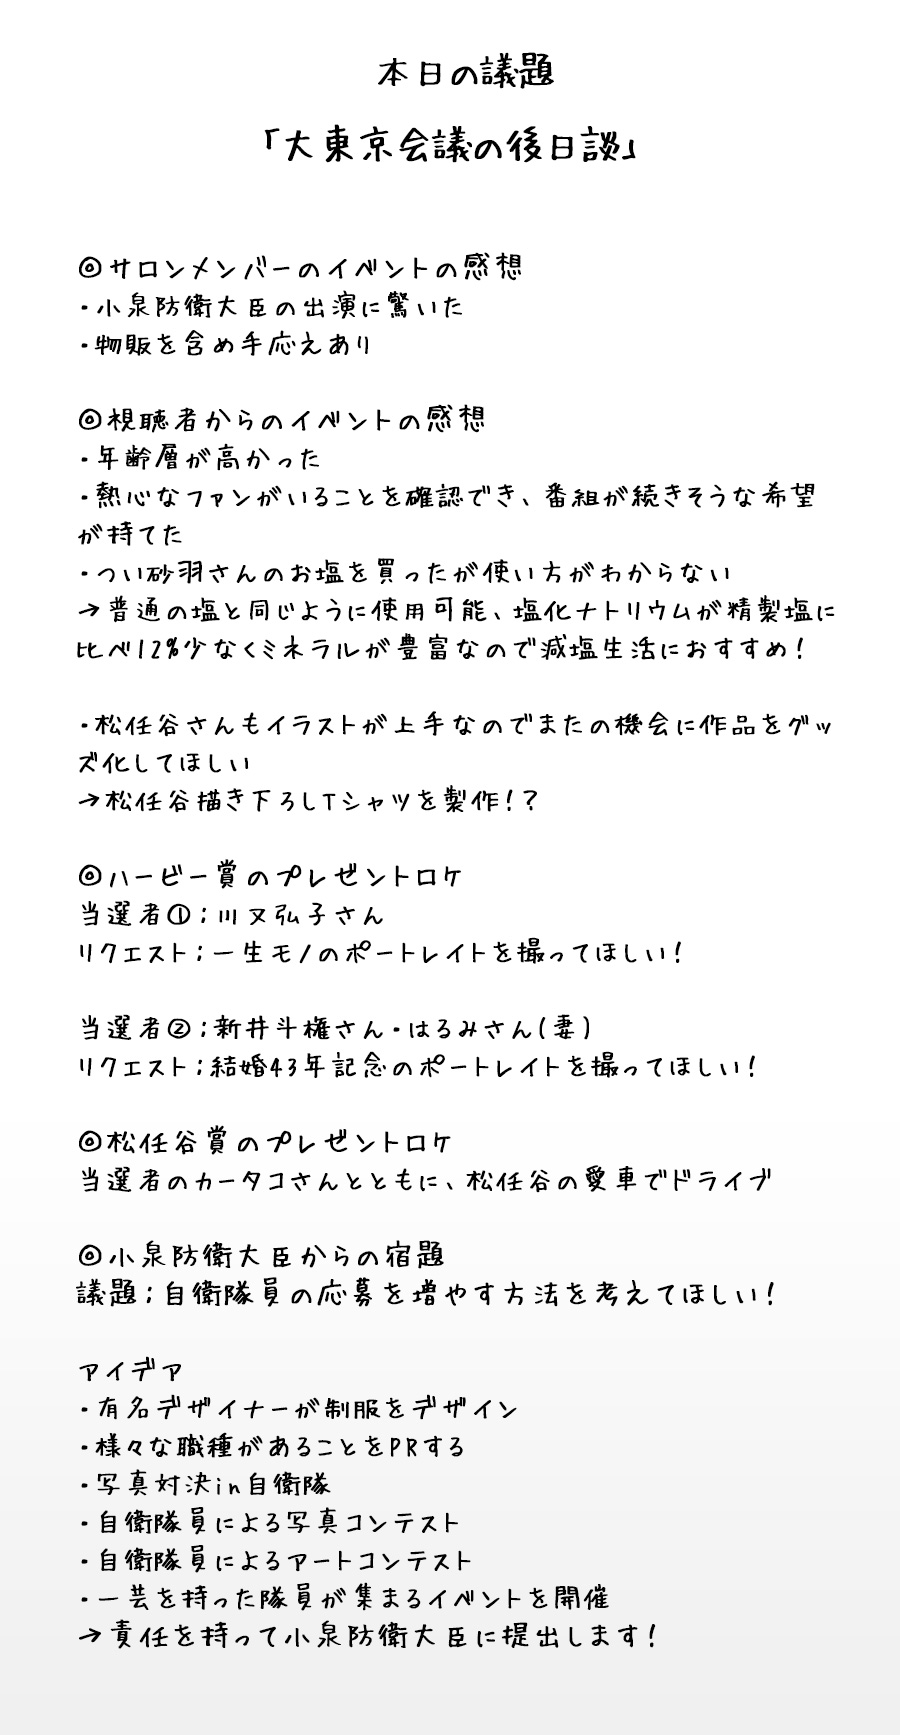 本日の議題
「大東京会議の後日談」
◎サロンメンバーのイベントの感想
・小泉防衛大臣の出演に驚いた
・物販を含め手応えあり
◎視聴者からのイベントの感想
・年齢層が高かった
・熱心なファンがいることを確認でき、番組が続きそうな希望
が持てた
・つい砂羽さんのお塩を買ったが使い方がわからない
→普通の塩と同じように使用可能、塩化ナトリウムが精製塩に
比べ12%少なくミネラルが豊富なので減塩生活におすすめ!
・松任谷さんもイラストが上手なのでまたの機会に作品をグッ
ズ化してほしい
→松任谷描き下ろしTシャツを製作!?
◎ハービー賞のプレゼントロケ
当選者①:川又弘子さん
リクエスト:一生モノのポートレイトを撮ってほしい!
当選者②:新井斗権さん・はるみさん(妻)
リクエスト:結婚43年記念のポートレイトを撮ってほしい!
◎松任谷賞のプレゼントロケ
当選者のカータコさんとともに、松任谷の愛車でドライブ
◎小泉防衛大臣からの宿題
議題:自衛隊員の応募を増やす方法を考えてほしい!
アイデア
・有名デザイナーが制服をデザイン
・様々な職種があることをPRする
・写真対決in自衛隊
・自衛隊員による写真コンテスト
・自衛隊員によるアートコンテスト
・一芸を持った隊員が集まるイベントを開催
→責任を持って小泉防衛大臣に提出します!